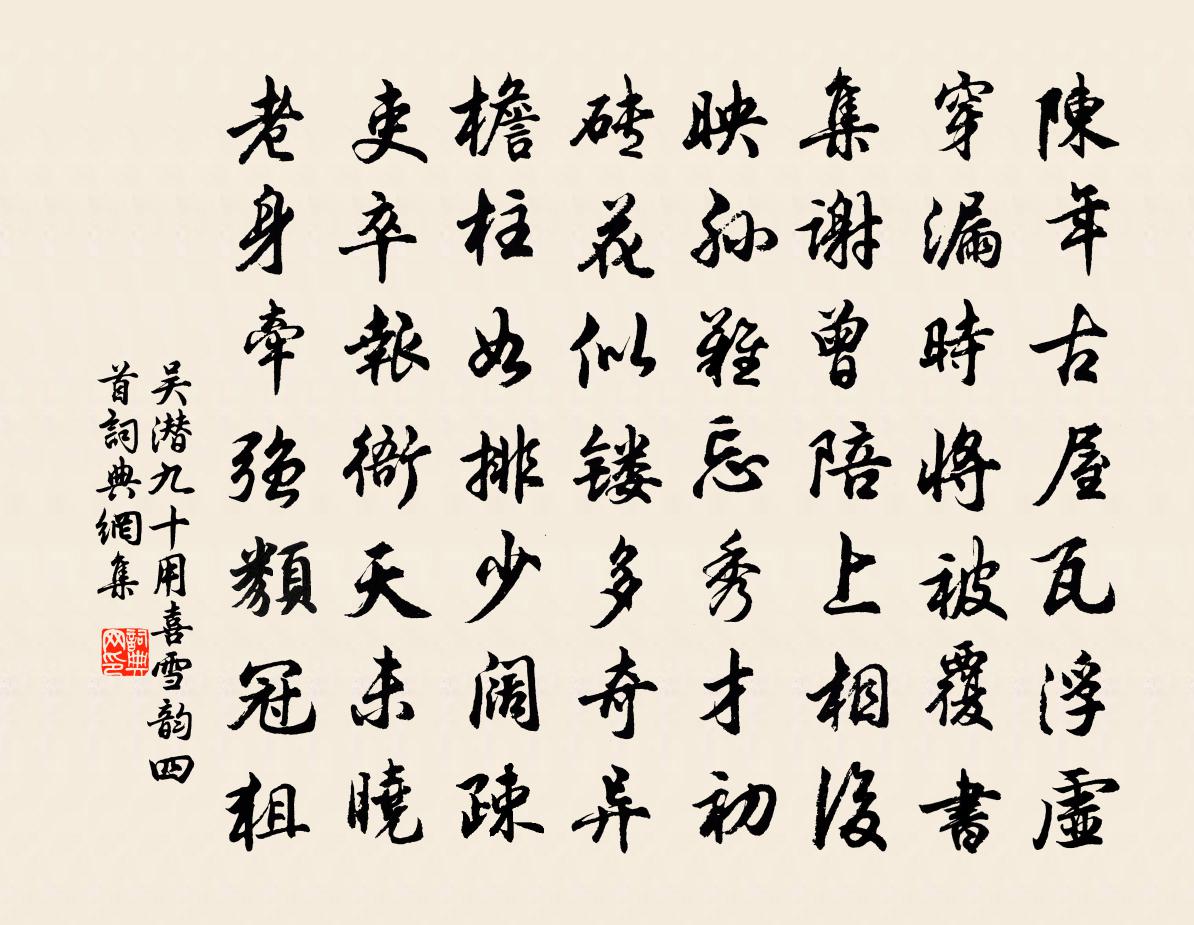 陳年古屋瓦浮虛
穿漏時將被覆書
集謝曾陪上相後
映孙難忘秀才初
砖花似镂多奇异
檐柱如排少阔疎
吏卒報衙天未曉
老身牽强類冠狙
吴潜九十用喜雪韵四
首詞典網集
詞典网印